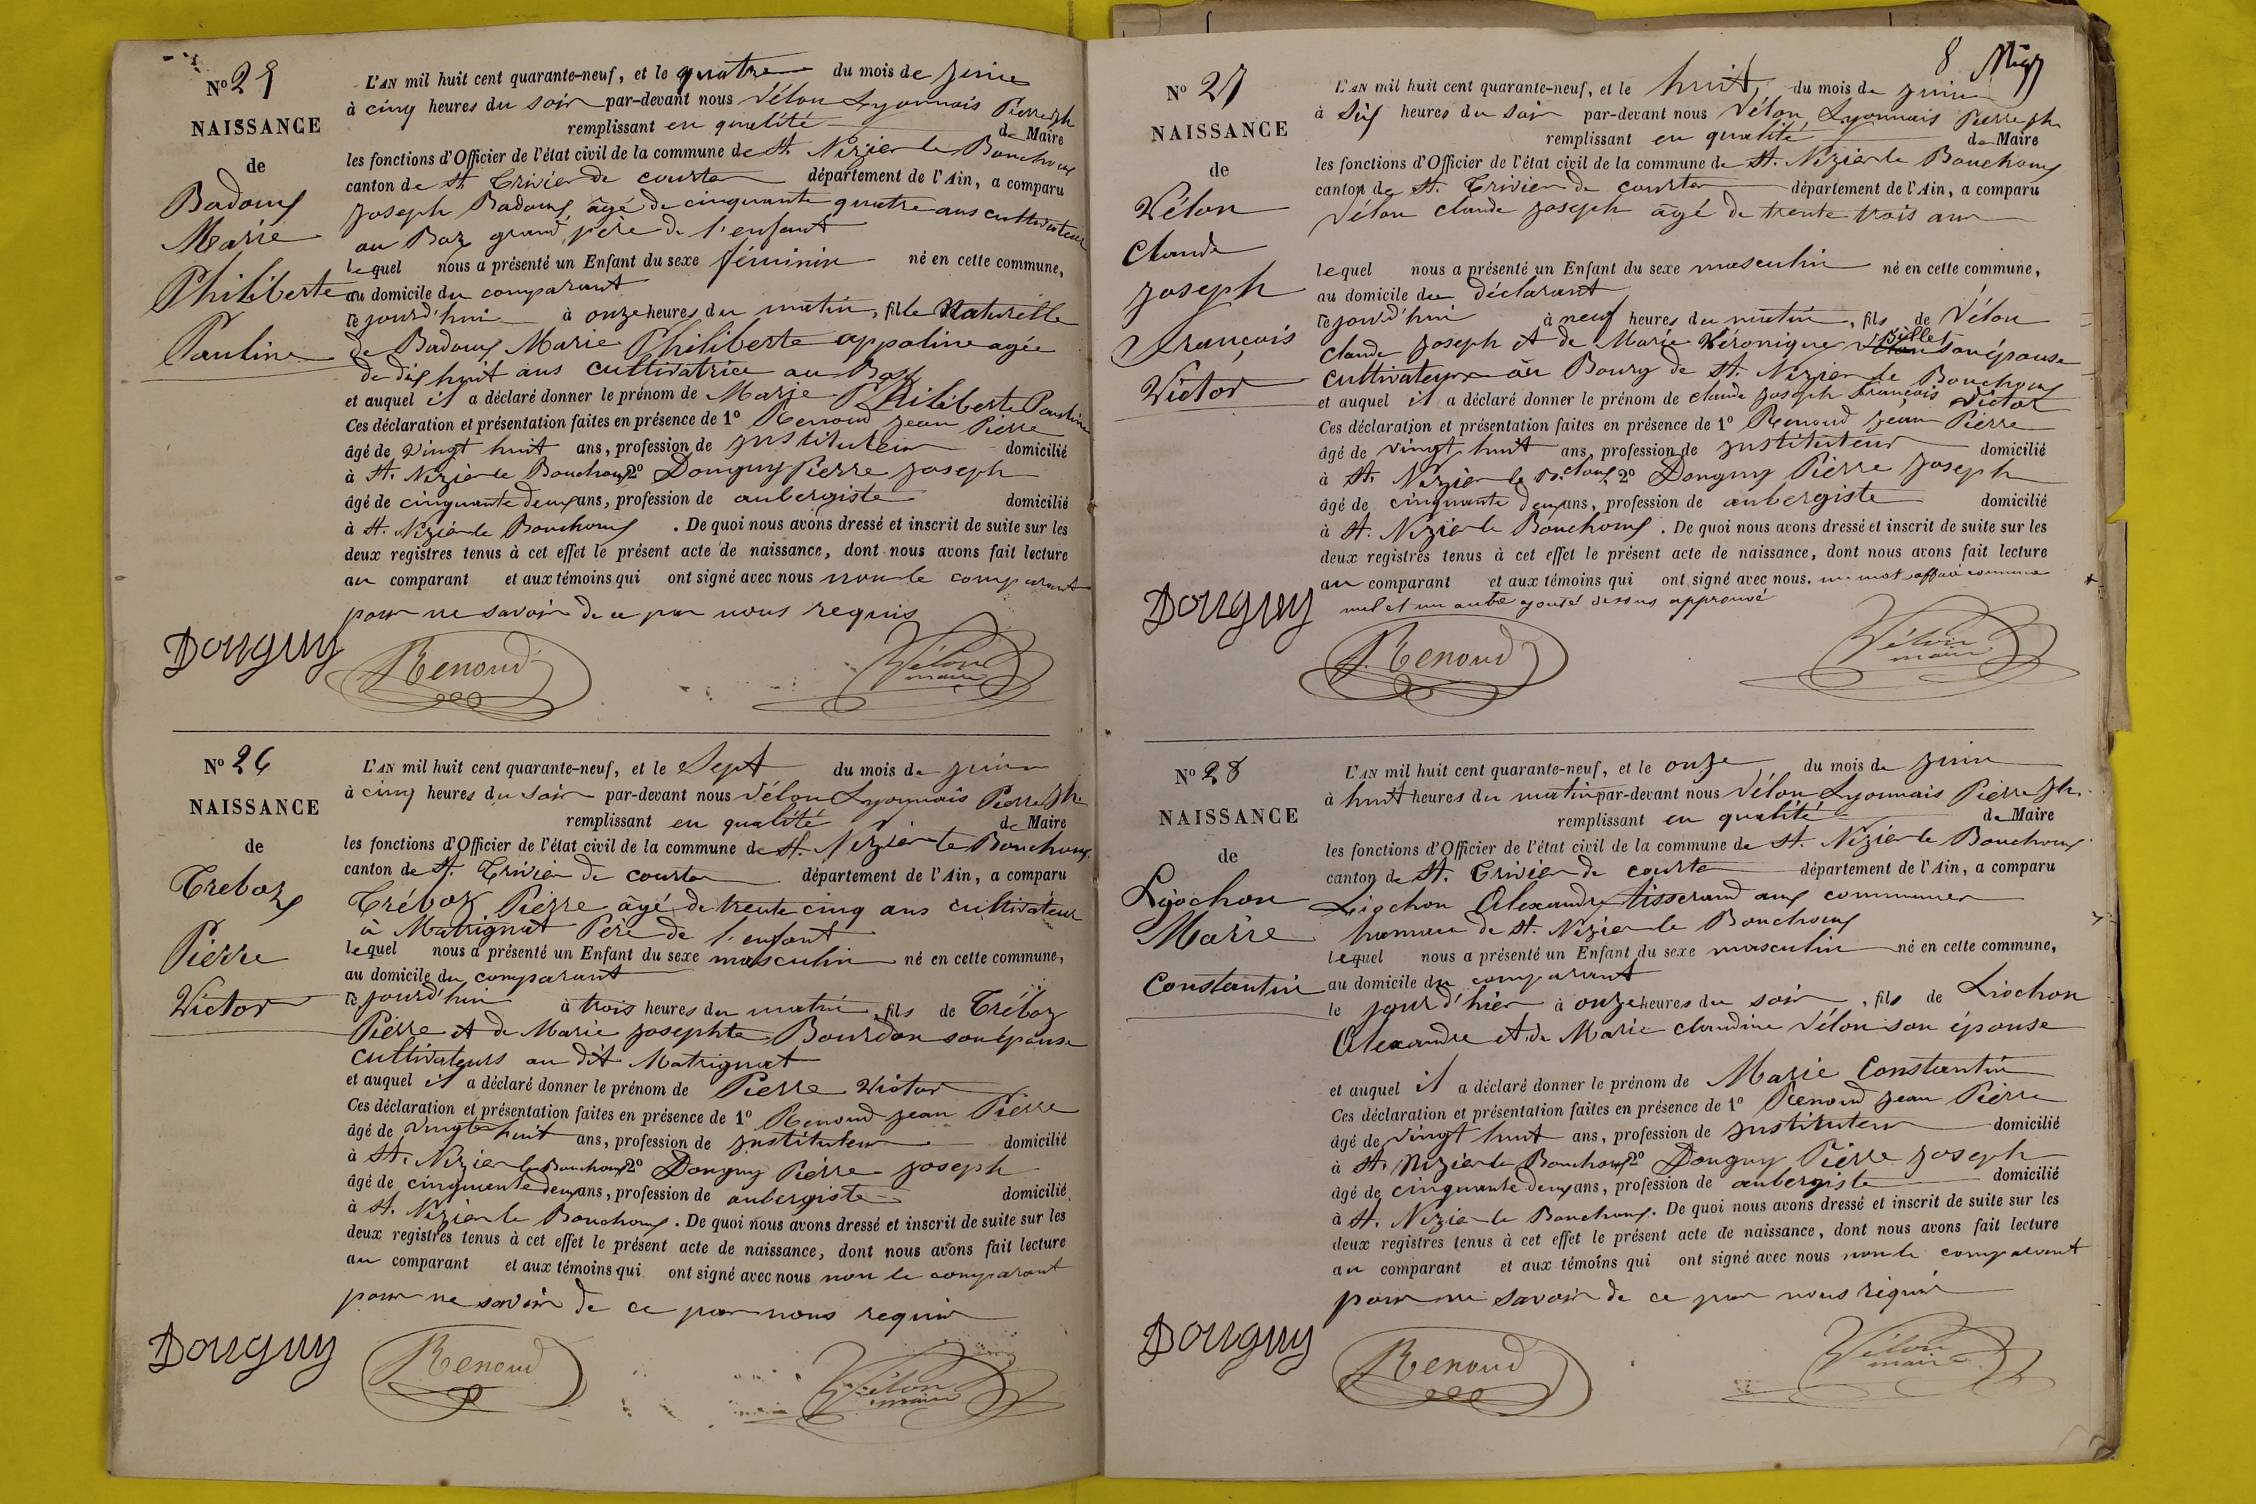 No 25
NAISSANCE
de
Badoux
Marie
Philiberte
Pauline
L'AN mil huit cent quarante-neuf, et le quatre du mois de juin
à cinq heures du soir par-devant nous Vélon Lyonnais Pierre Jh
remplissant en qualité de Maire
les fonctions d'Officier de l'état civil de la commune de St. Nizier le Bouchoux
canton de St Trivier de courtes département de l'Ain, a comparu
Joseph Badoux âgé de cinquante quatre ans cultivateur
au Baz grand père de l'enfant
lequel nous a présenté un Enfant du sexe féminin né en cette commune,
au domicile du comparant
ce jourd'hui à onze heures du matin, fille Naturelle
de Badoux Marie Philiberte appoline agée
de dix huit ans cultivatrice au Baz
et auquel il a déclaré donner le prénom de Marie Philiberte Pauline
Ces déclaration et présentation faites en présence de 1o Renoud jean Pierre
âgé de vingt huit ans, profession de instituteur domicilié
à St. Nizier le Bouchoux 2o Donguy Pierre Joseph
âgé de cinquante deux ans, profession de aubergiste domicilié
à St. Nizier le Bouchoux. De quoi nous avons dressé et inscrit de suite sur les
deux registres tenus à cet effet le présent acte de naissance, dont nous avons fait lecture
au comparant et aux témoins qui ont signé avec nous non le comparant
pour ne savoir de ce par nous requis
Donguy Renoud Vélon
maire
No 26
NAISSANCE
de
Treboz
Pierre
Victor
L'AN mil huit cent quarante-neuf, et le Sept du mois de juin
à cinq heures du soir par-devant nous Vélon Lyonnais Pierre Jh
remplissant en qualité de Maire
les fonctions d'Officier de l'état civil de la commune de St. Nizier le Bouchoux
canton de St. Trivier de courtes département de l'Ain, a comparu
Tréboz Pierre âgé de trente cinq ans cultivateur
à Matrignat Père de l'enfant
lequel nous a présenté un Enfant du sexe masculin né en cette commune,
au domicile du comparant
ce jourd'hui à trois heures du matin fils de Tréboz
Pierre et de Marie josephte Bourdon son épouse
cultivateurs au dit Matrignat
et auquel il a déclaré donner le prénom de Pierre Victor
Ces déclaration et présentation faites en présence de 1o Renoud jean Pierre
âgé de vingt huit ans, profession de instituteur domicilié
à St. Nizier le Bouchoux 2o Donguy Pierre Joseph
âgé de cinquante deux ans, profession de aubergiste domicilié
à St. Nizier le Bouchoux. De quoi nous avons dressé et inscrit de suite sur les
deux registres tenus à cet effet le présent acte de naissance, dont nous avons fait lecture
au comparant et aux témoins qui ont signé avec nous non le comparant
pour ne savoir de ce par nous requis
Donguy Renoud Vélon
maire
8
No 27
NAISSANCE
de
Vélon
Claude
Joseph
François
Victor
L'AN mil huit cent quarante-neuf, et le huit du mois de juin
à Six heures du soir par-devant nous Vélon Lyonnais Pierre Jh
remplissant en qualité de Maire
les fonctions d'Officier de l'état civil de la commune de St. Nizier le Bouchoux
canton de St. Trivier de courtes département de l'Ain, a comparu
Vélon claude Joseph âgé de trente trois ans
lequel nous a présenté un Enfant du sexe masculin né en cette commune,
au domicile du déclarant
ce jourd'hui à neuf heures du matin, fils de Vélon
Billet
claude Joseph et de Marie Véronique Vélon son épouse
cultivateurs au Bourg de St. Nizier le Bouchoux
et auquel il a déclaré donner le prénom de claude Joseph François Victor
Ces déclaration et présentation faites en présence de 1o Renoud jean Pierre
âgé de vingt huit ans, profession de instituteur domicilié
à St. Nizier le B.choux 2o Donguy Pierre Joseph
âgé de cinquante deux ans, profession de aubergiste domicilié
à St. Nizier le Bouchoux. De quoi nous avons dressé et inscrit de suite sur les
deux registres tenus à cet effet le présent acte de naissance, dont nous avons fait lecture
au comparant et aux témoins qui ont signé avec nous. un mot effacé comme
nul et un autre ajouté dessus approuvé
Donguy Renoud Vélon
maire
No 28
NAISSANCE
de
Liochon
Marie
Constantin
L'AN mil huit cent quarante-neuf, et le onze du mois de juin
à huit heures du matin par-devant nous Vélon Lyonnais Pierre Jh.
remplissant en qualité de Maire
les fonctions d'Officier de l'état civil de la commune de St. Nizier le Bouchoux
canton de St. Trivier de courtes département de l'Ain, a comparu
Liochon Alexandre tisserand aux communes
hameau de St. Nizier le Bouchoux
lequel nous a présenté un Enfant du sexe masculin né en cette commune,
au domicile du comparant
le jour d'hier à onze heures du soir, fils de Liochon
Alexandre et de Marie claudine Vélon son épouse
et auquel il a déclaré donner le prénom de Marie Constantin
Ces déclaration et présentation faites en présence de 1o Renoud jean Pierre
âgé de vingt huit ans, profession de instituteur domicilié
à St. Nizier le Bouchoux 2o Donguy Pierre Joseph
âgé de cinquante deux ans, profession de aubergiste domicilié
à St. Nizier le Bouchoux. De quoi nous avons dressé et inscrit de suite sur les
deux registres tenus à cet effet le présent acte de naissance, dont nous avons fait lecture
au comparant et aux témoins qui ont signé avec nous non le comparant
pour ne savoir de ce par nous requis
Donguy Renoud Vélon
maire